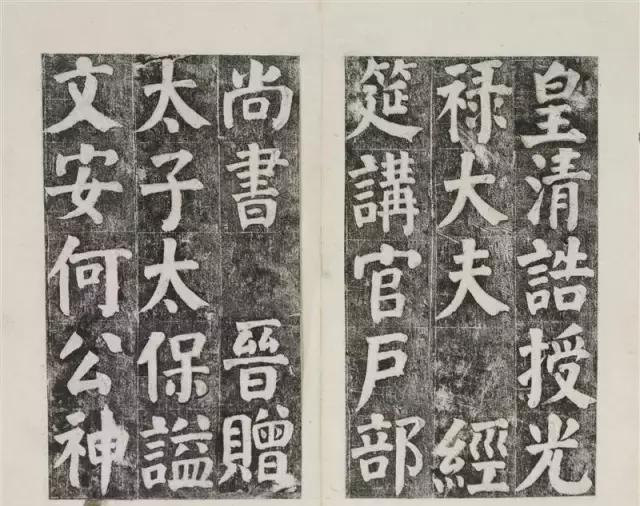 皇清誥授光
祿大夫 經
筵講官戶部
尚書 晉贈
太子太保謚
文安何公神